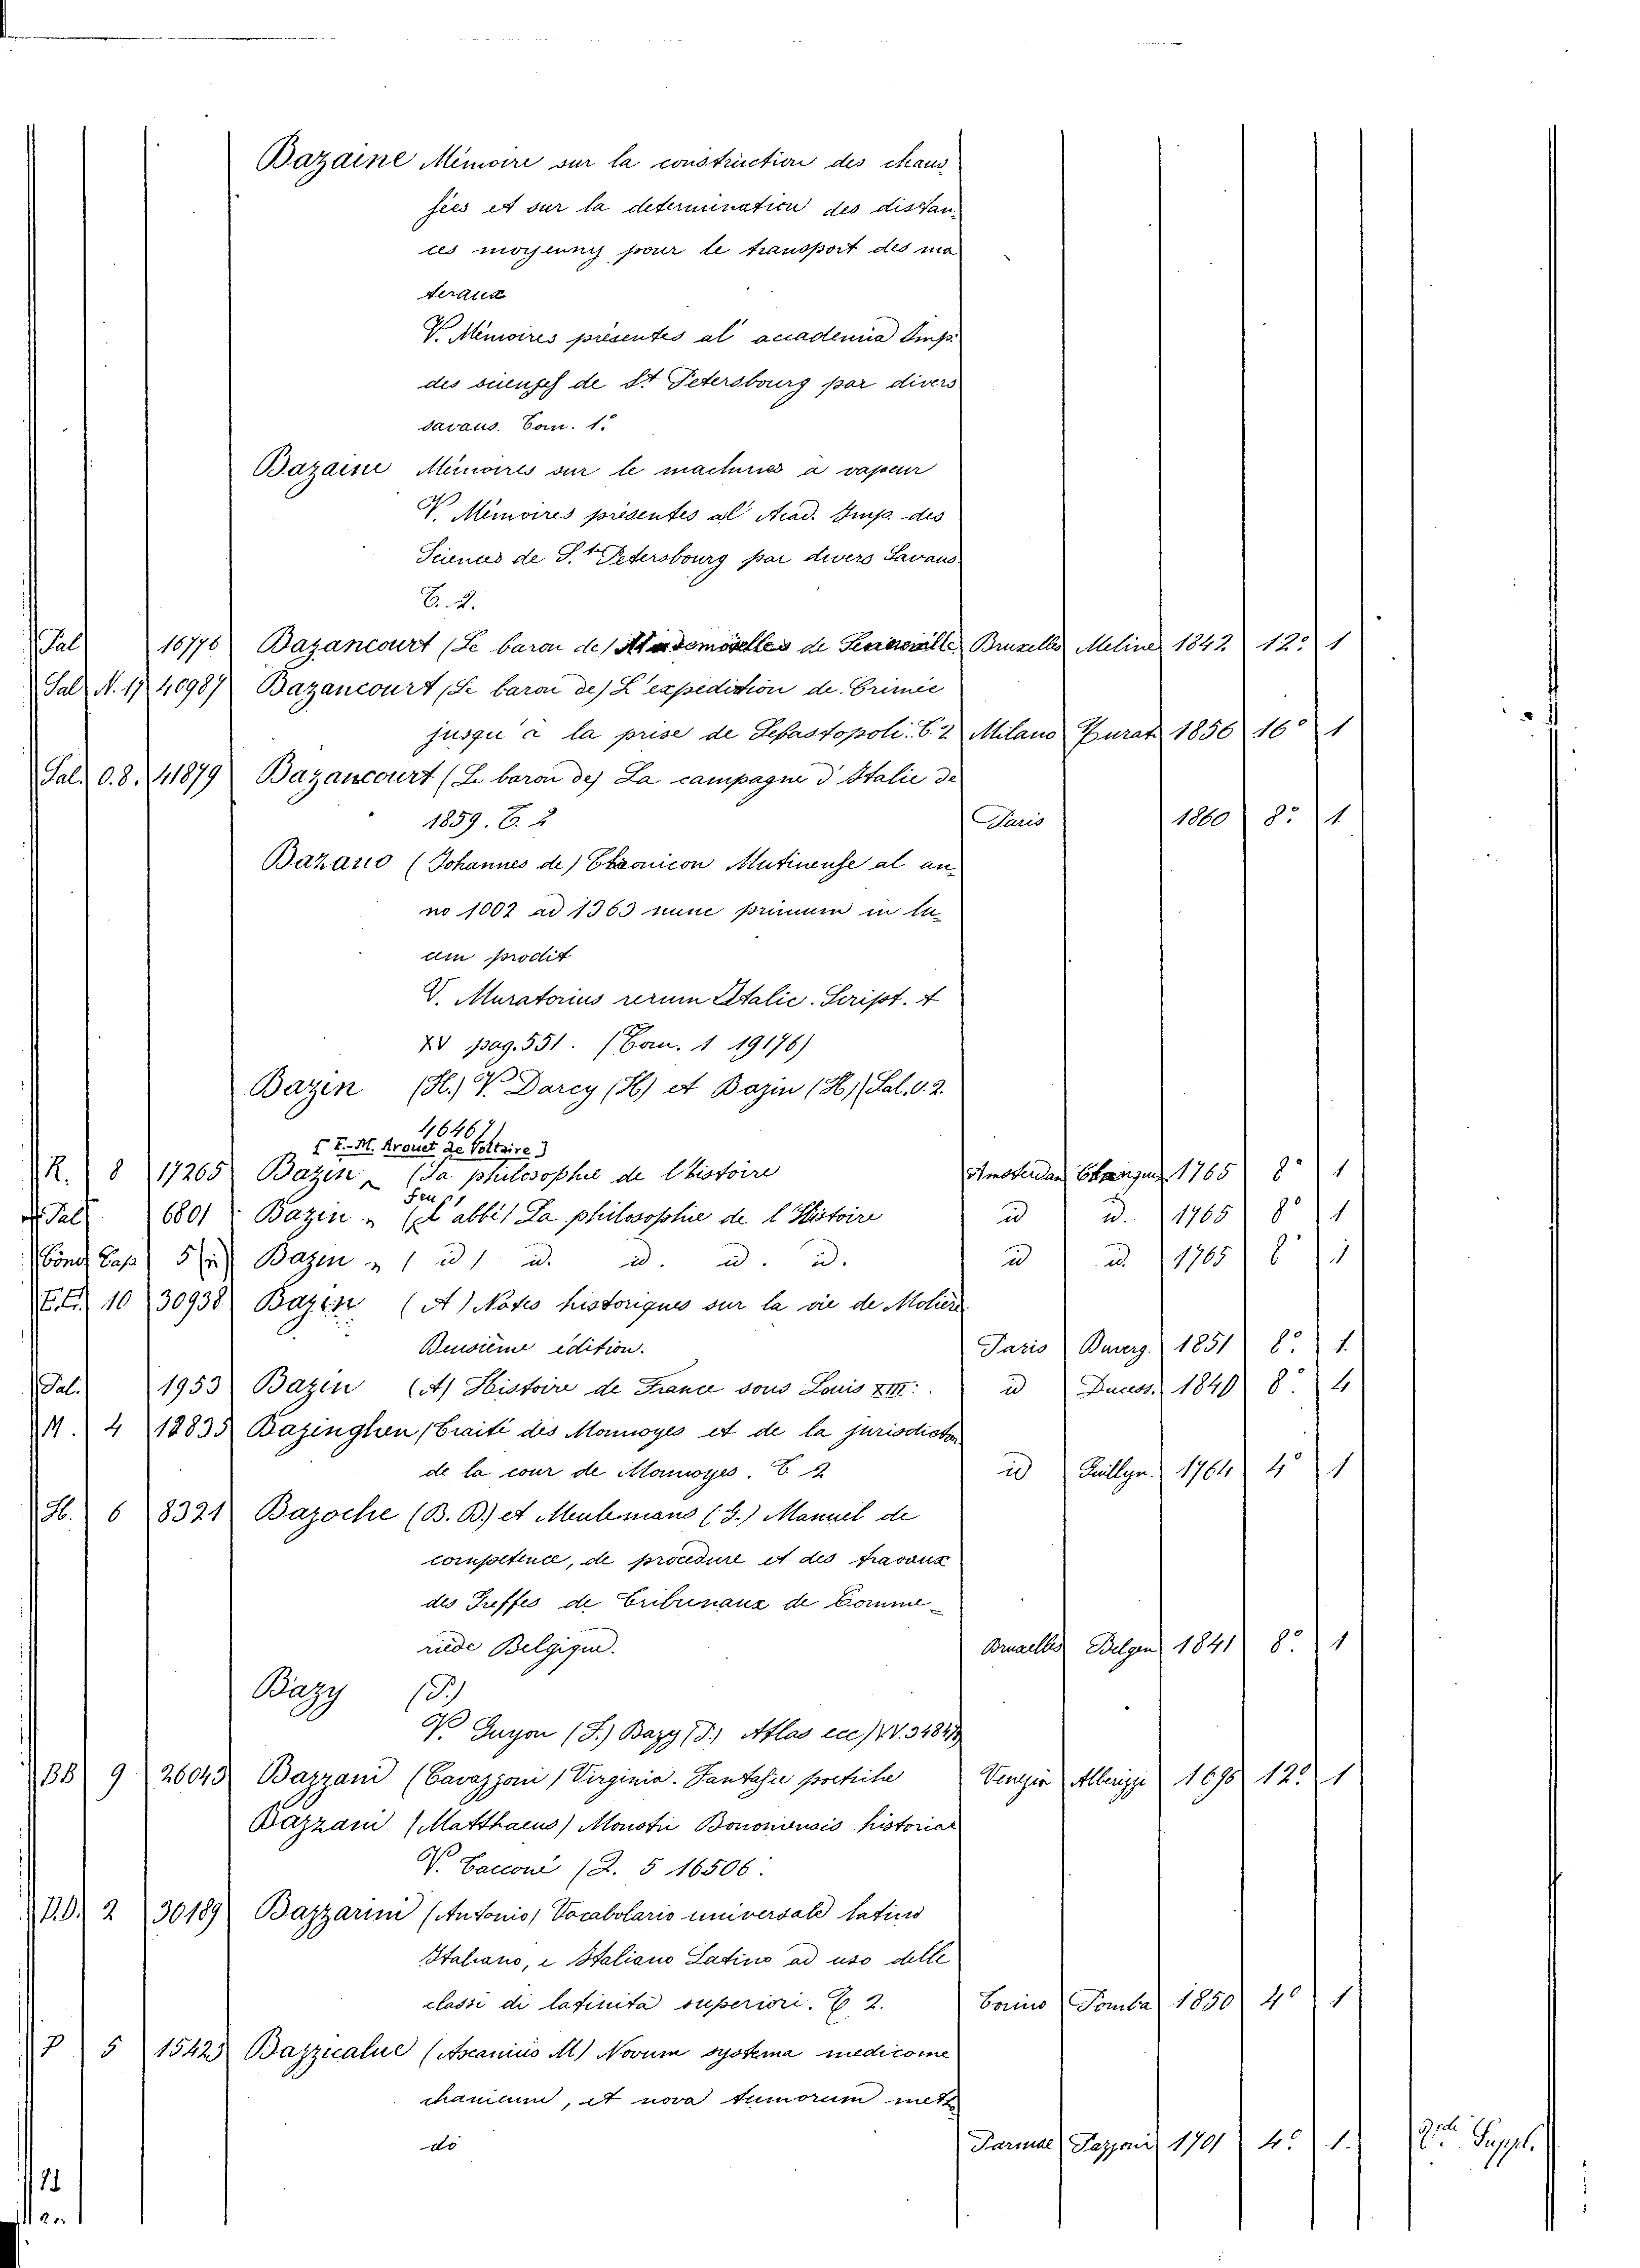 Bazaine Mémoire sur la construction des chaus-
sées et sur la determination des distan-
ces moyenny pour le transport des ma
teraux
V. Mémoires présentés al' accademia Imp.
des scienses de St Petersbourg par divers
savans. Tom. 1.°
Bazaine Mémoires sur le machines a vapeur
V. Mémoires présentés al' Acad. Imp. des
Sciences de S.t Petersbourg par divers Savans
T. 2.
Pal 16776 Bazancourt (Le baron de) Mademoselles de Bruxelles Meline 1842 12° 1
Sal N. 17 40987 Bazancourt (Le baron de) L'expedition de Crimée
jusqu'à la prise de Sebastopoli. T. 2 Milano Turati 1856 16° 1
Sal. O. 8. 41879 Bazancourt (Le baron de) La campagne d'Italie de
1859. T. 2 Paris 1860 8° 1
Bazano (Johannes de) Chronicon Mutinense al an-
no 1002 ad 1363 nunc primum in lu-
cem prodit
V. Muratorius rerum Italic. Script. t
XV pag. 551. (Tom. 1 19176)
Bazin (H.) V. Darcy (H) et Bazin (H) (Sal. V. 2.
46467)
[F.-M. Arouet de Voltaire]
R. 8 17265 Bazin (La philosophie de l'histoire Amsterdam Changuin 1765 8° 1
Pal 6801 Bazin " (feu l'abbé) La philosophie de l'Histoire id id. 1765 8° 1
Cond Cap 5 Bazin " ( id ) id. id. id. id. id id. 1765 8° 1
E.E. 10 30938 Bazin (A) Notes historiques sur la vie de Moliere
Deusième édition. Paris Baverg. 1851 8° 1
Pal. 1953 Bazin (A) Histoire de France sous Louis XIII. id 1840 8° 4
M. 4 18835 Bazinghen (Traité des Monnoyes et de la jurisdicton
de la cour de Monnoyes. T. 2. id Guillyn. 1764 4° 1
H. 6 8321 Bazoche (B. B.) et Meulemans (J.) Manuel de
competence, de procedure et des travaux
des Greffes de Tribunaux de Comme-
riede Belgique. Bruxelles Belgen 1841 8° 1
Bazy (P.)
V. Guyon (F.) Bazy (P.) Atlas ecc) VV. 34847)
BB 9 26043 Bazzani (Cavazzoni) Virginia. Fantasie poetiche Venezia Albrizzi 1696 12° 1
Bazzani (Matthaeus) Monstri Bononiensis historiae
V. Cacconi (Q. 5 16506.
DD. 2 30189 Bazzarini (Antonio) Vocabolario universale latino
Italiano, e Italiano Latino ad uso delle
classi di latinità superiori. T. 2. Torino Pomba 1850 4° 1
P 5 15423 Bazzicalve (Ascanius M) Novum systema medicome
chanicum, et nova tumorum meth
do Parmae Pazzoni 1701 4° 1. Suppl.